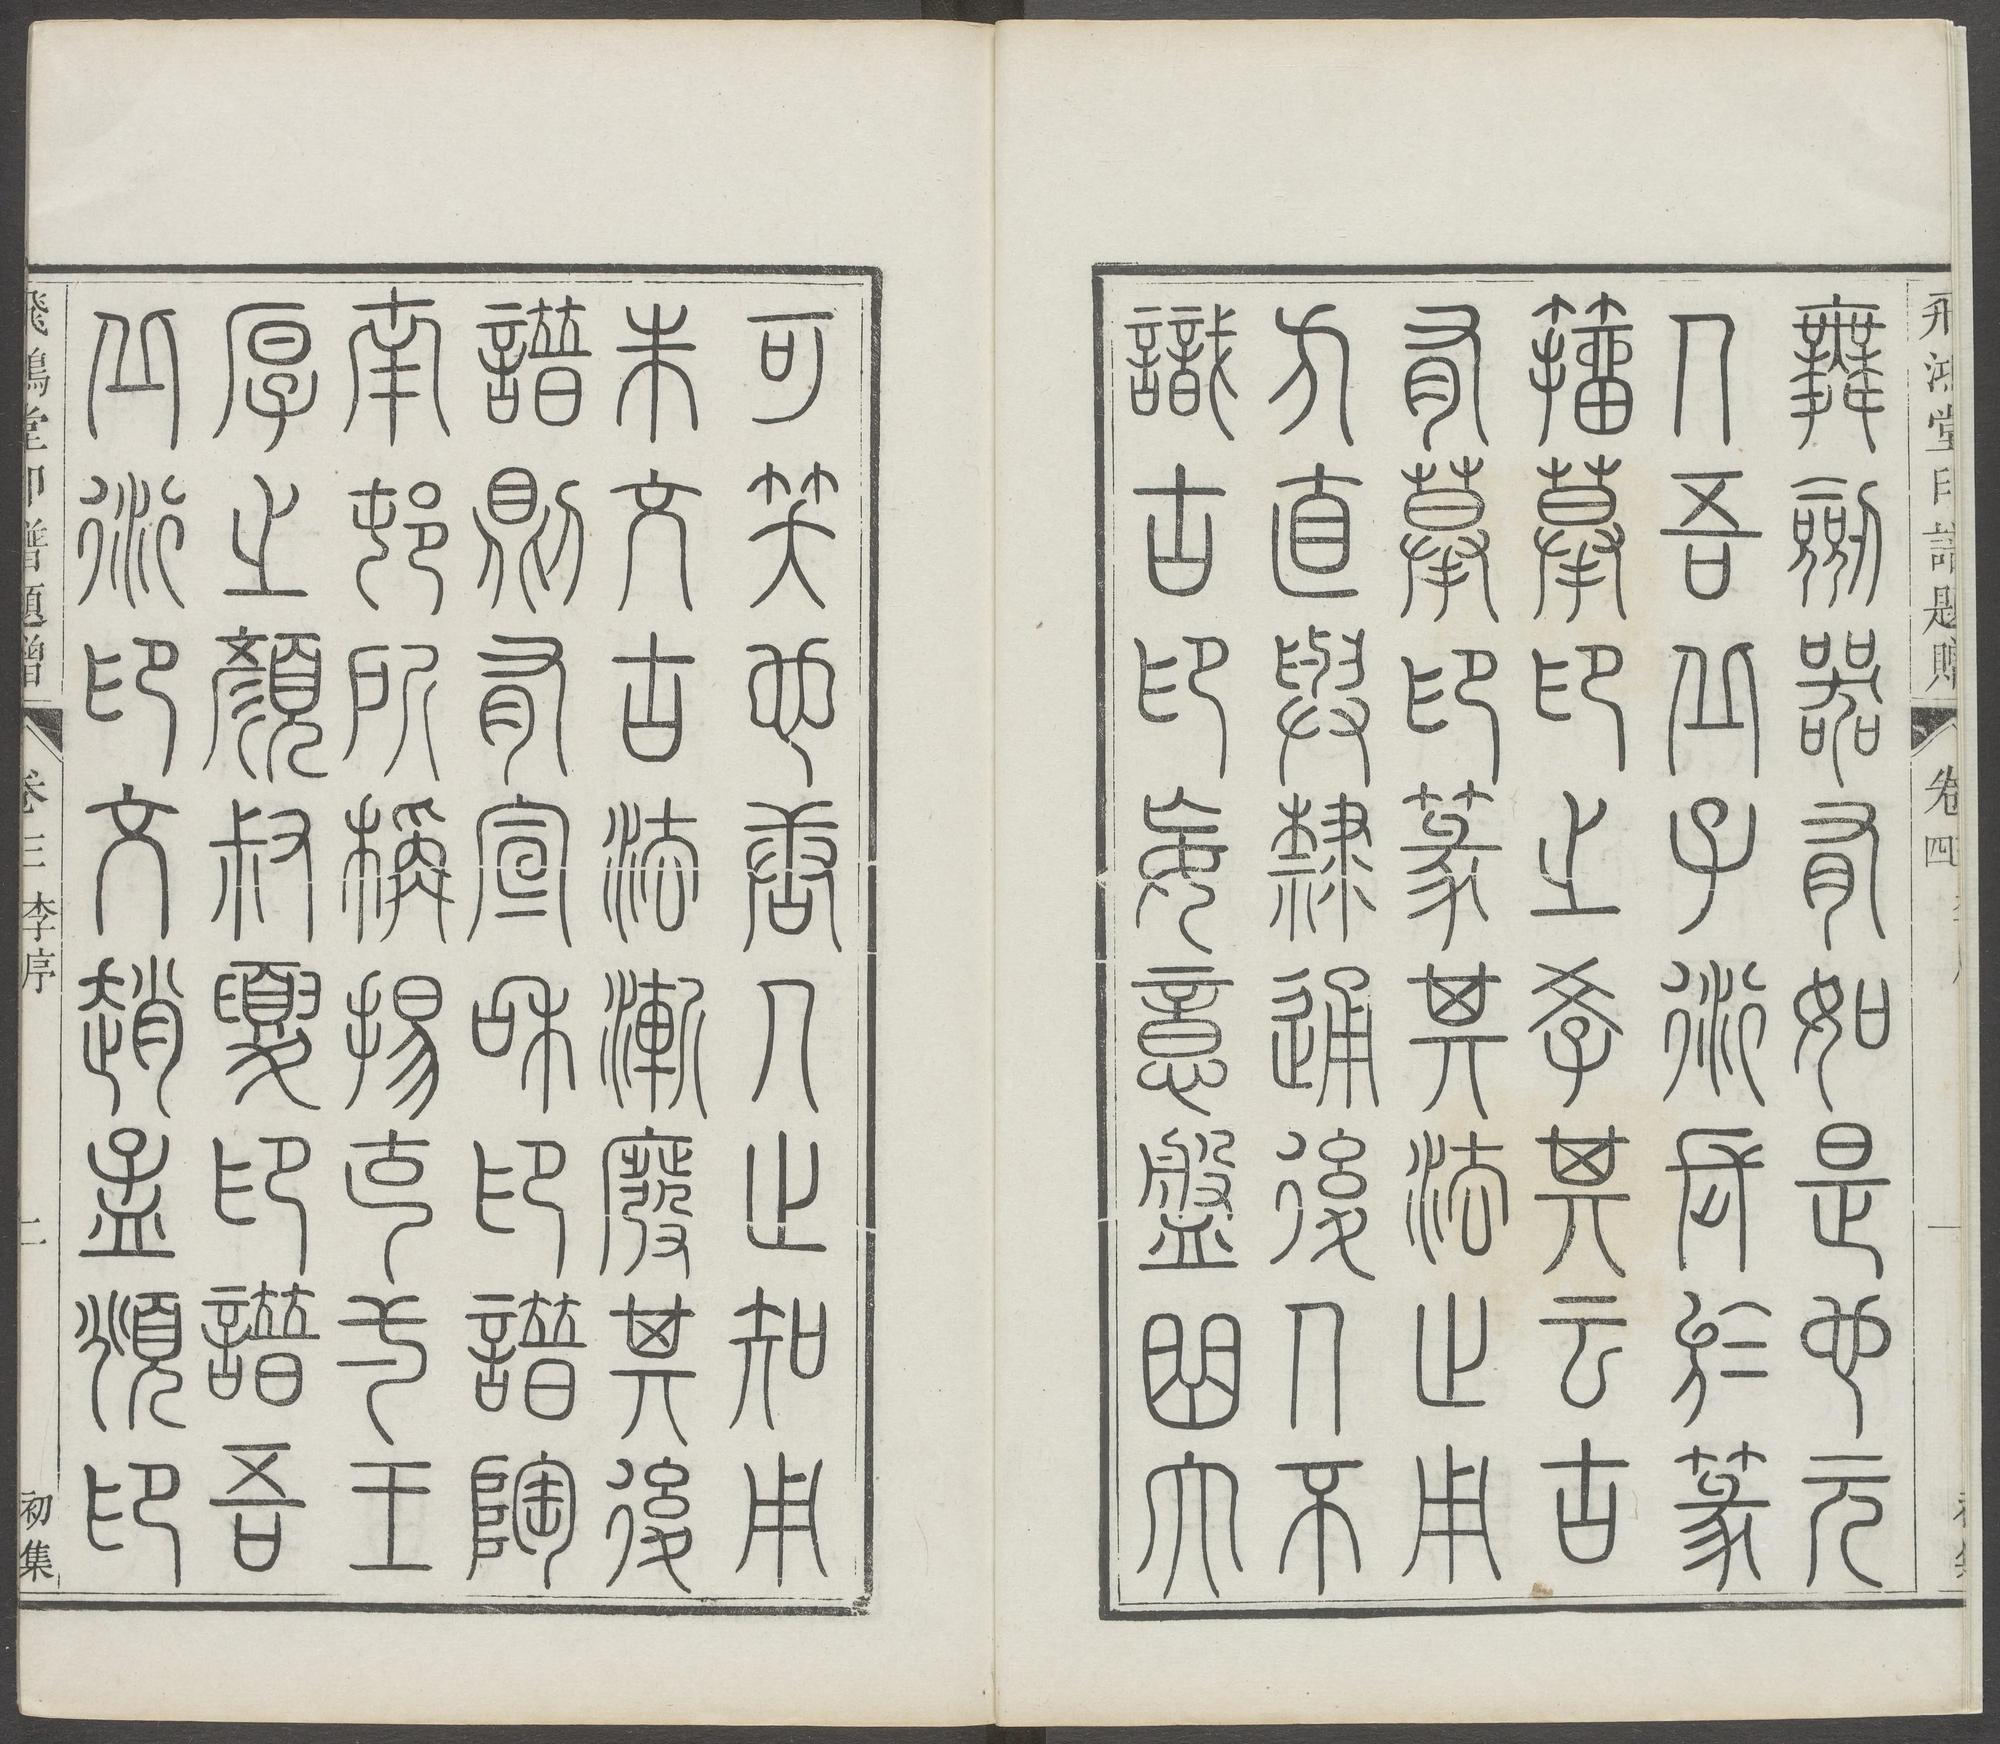 飛鴻堂印譜題贈 卷四 李序 一 初集
舞劍器有如是也元
人吾丘子衍長於篆
籀摹印之學其云古
有摹印篆其法止用
方直與隸通後人不
識古印妄意盤曲大
可笑也唐人止知用
朱文古法漸廢其後
譜則有宣和印譜陶
南邨所稱揚克弌王
厚之顏叔夏印譜吾
丘衍印文趙孟頫印
飛鴻堂印譜題贈 卷三 李序 二 初集